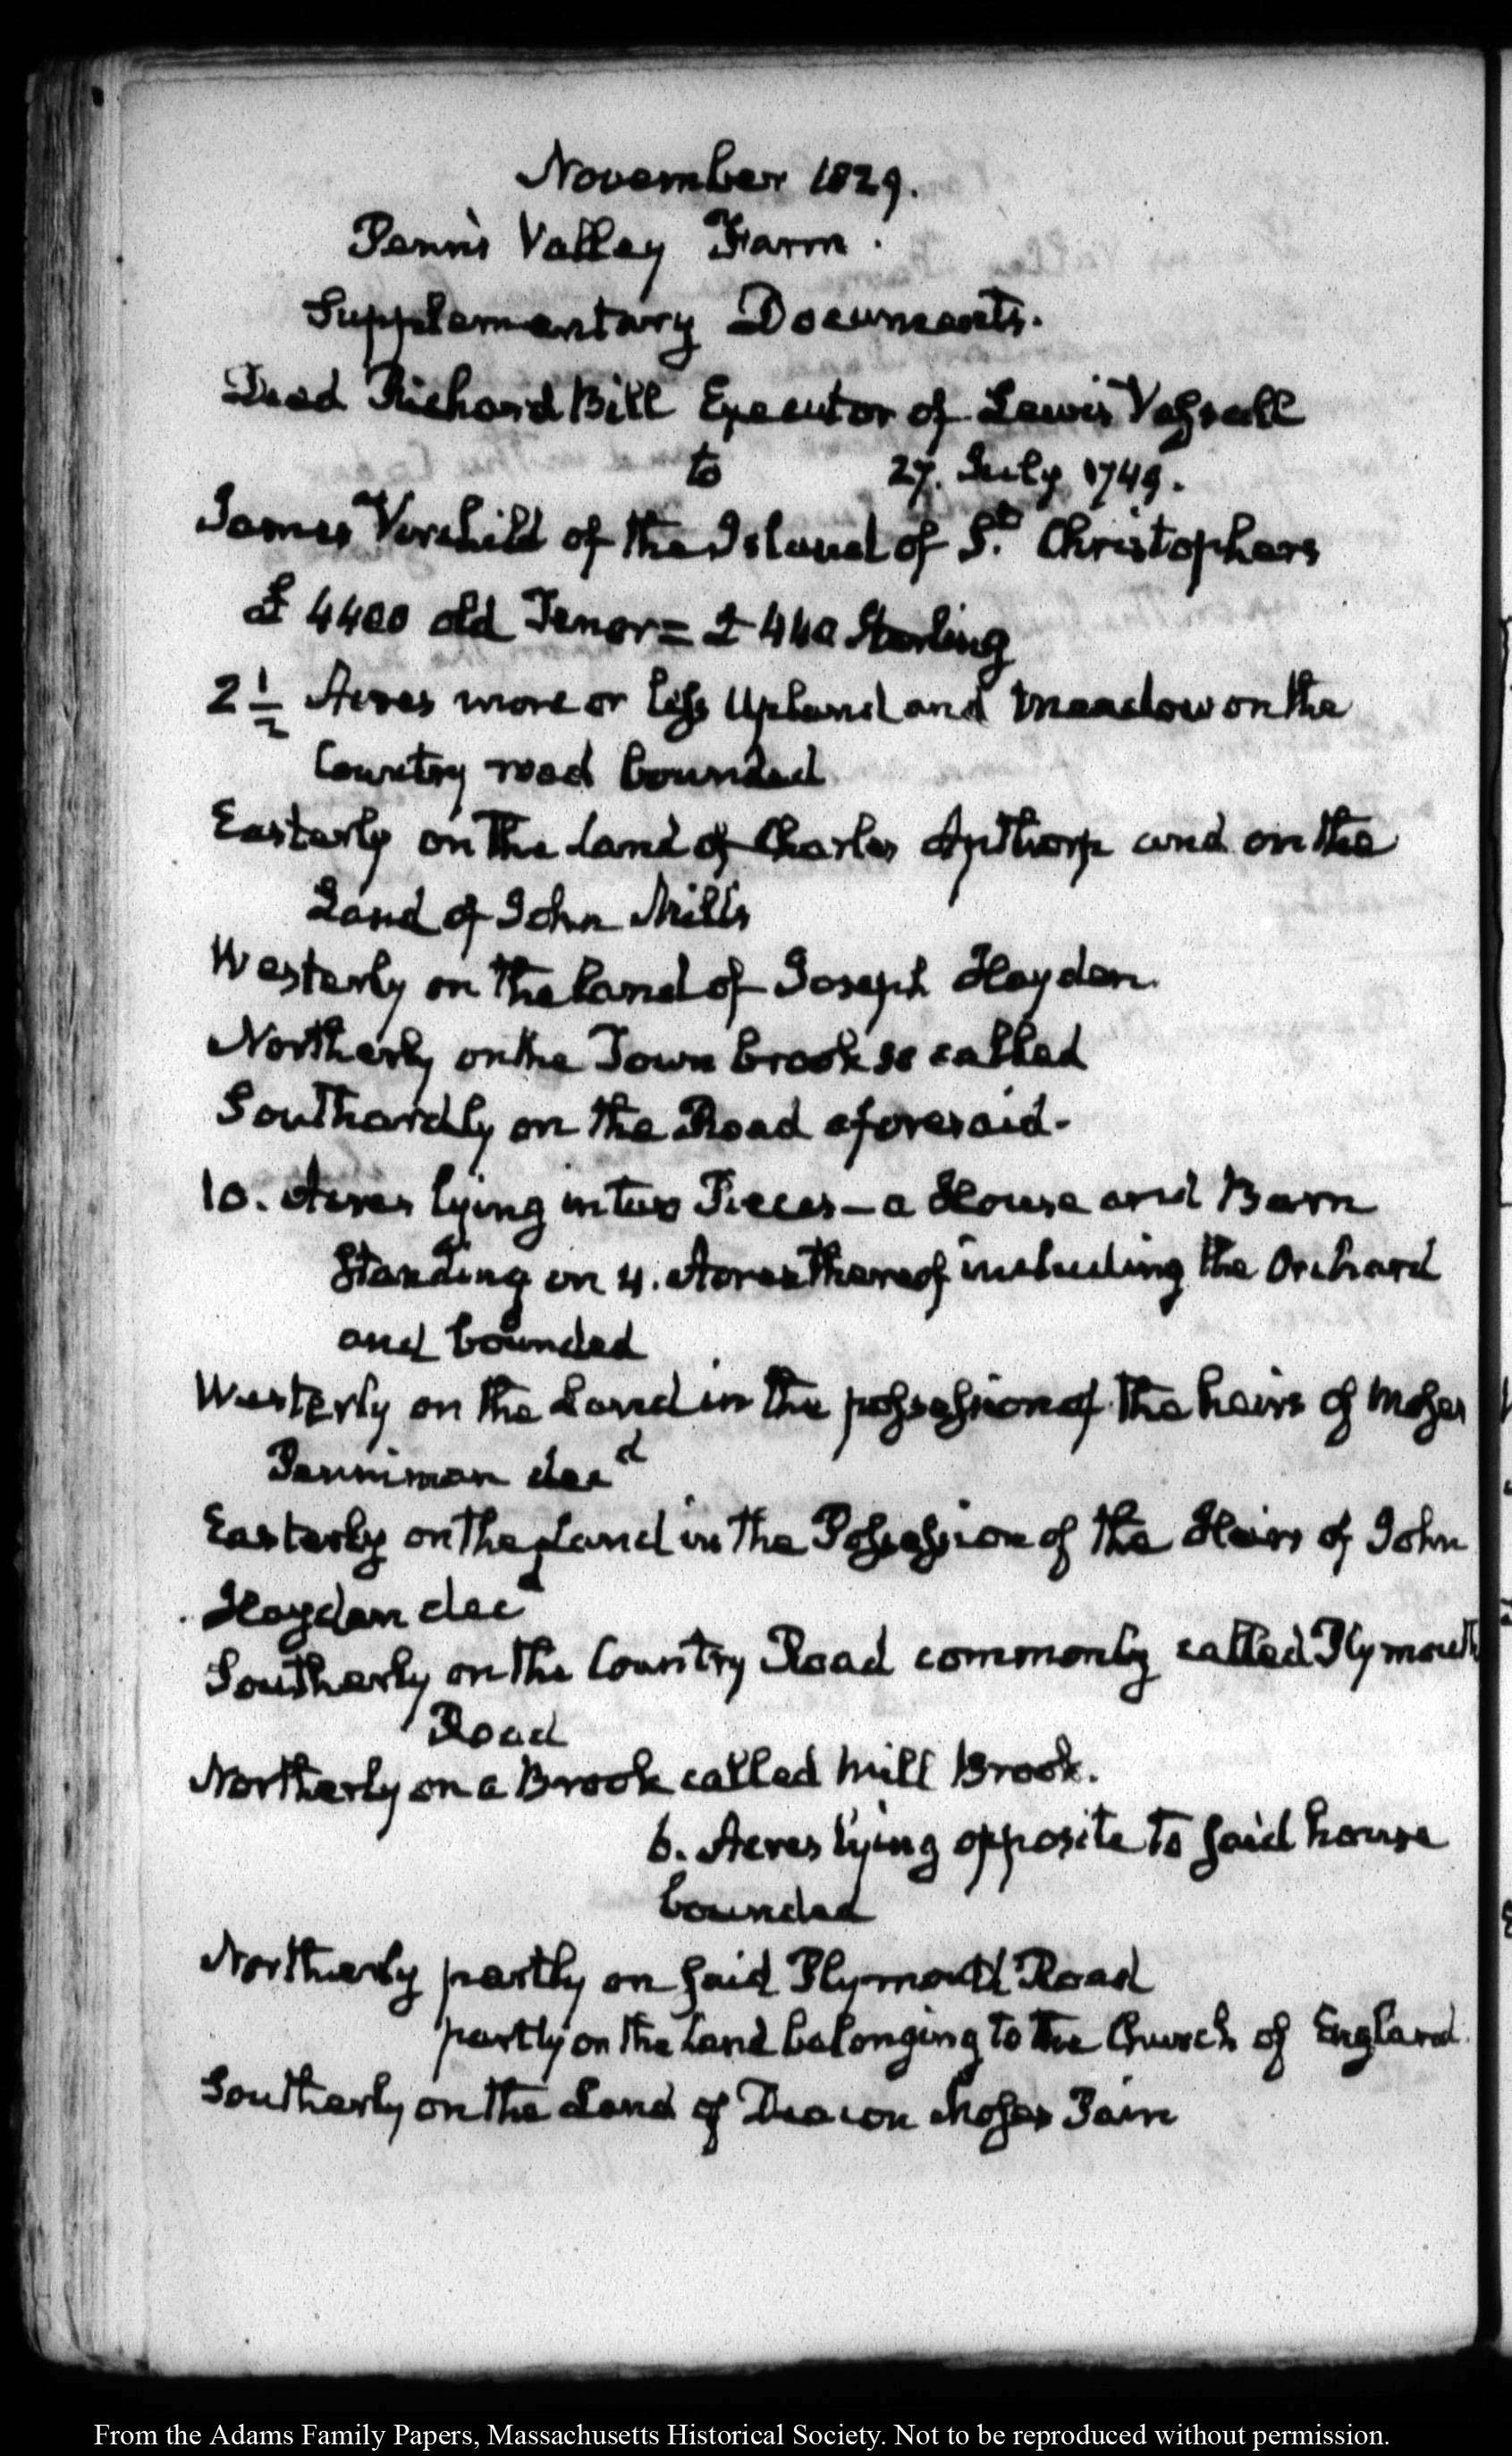 November 1829.
Penn's Valley Farm.
Supplementary Documents.
Deed Richard Bill Executor of Lewis Vassall
to 27. July 1749.
James Verchild of the Island of St. Christophers
£ 4400 old Tenor = £ 440 Sterling
2 1/2 Acres more or less Upland and Meadow on the
Country road bounded
Easterly on the land of Charles Apthorp and on the
Land of John Mills
Westerly on the land of Joseph Hayden.
Northerly on the Town brook so called
Southardly on the Road aforesaid.
10. Acres lying in two Pieces — a House and Barn
Standing on 4. Acres thereof including the Orchard
and bounded
Westerly on the Land in the possession of the heirs of Moses
Penniman decd
Easterly on the Land in the Possession of the Heirs of John
Hayden decd
Southerly on the Country Road commonly called Plymouth
Road
Northerly on a Brook called Mill Brook.
6. Acres lying opposite to said house
bounded
Northerly partly on said Plymouth Road
partly on the Land belonging to the Church of England.
Southerly on the Land of Deacon Moses Pain
From the Adams Family Papers, Massachusetts Historical Society. Not to be reproduced without permission.